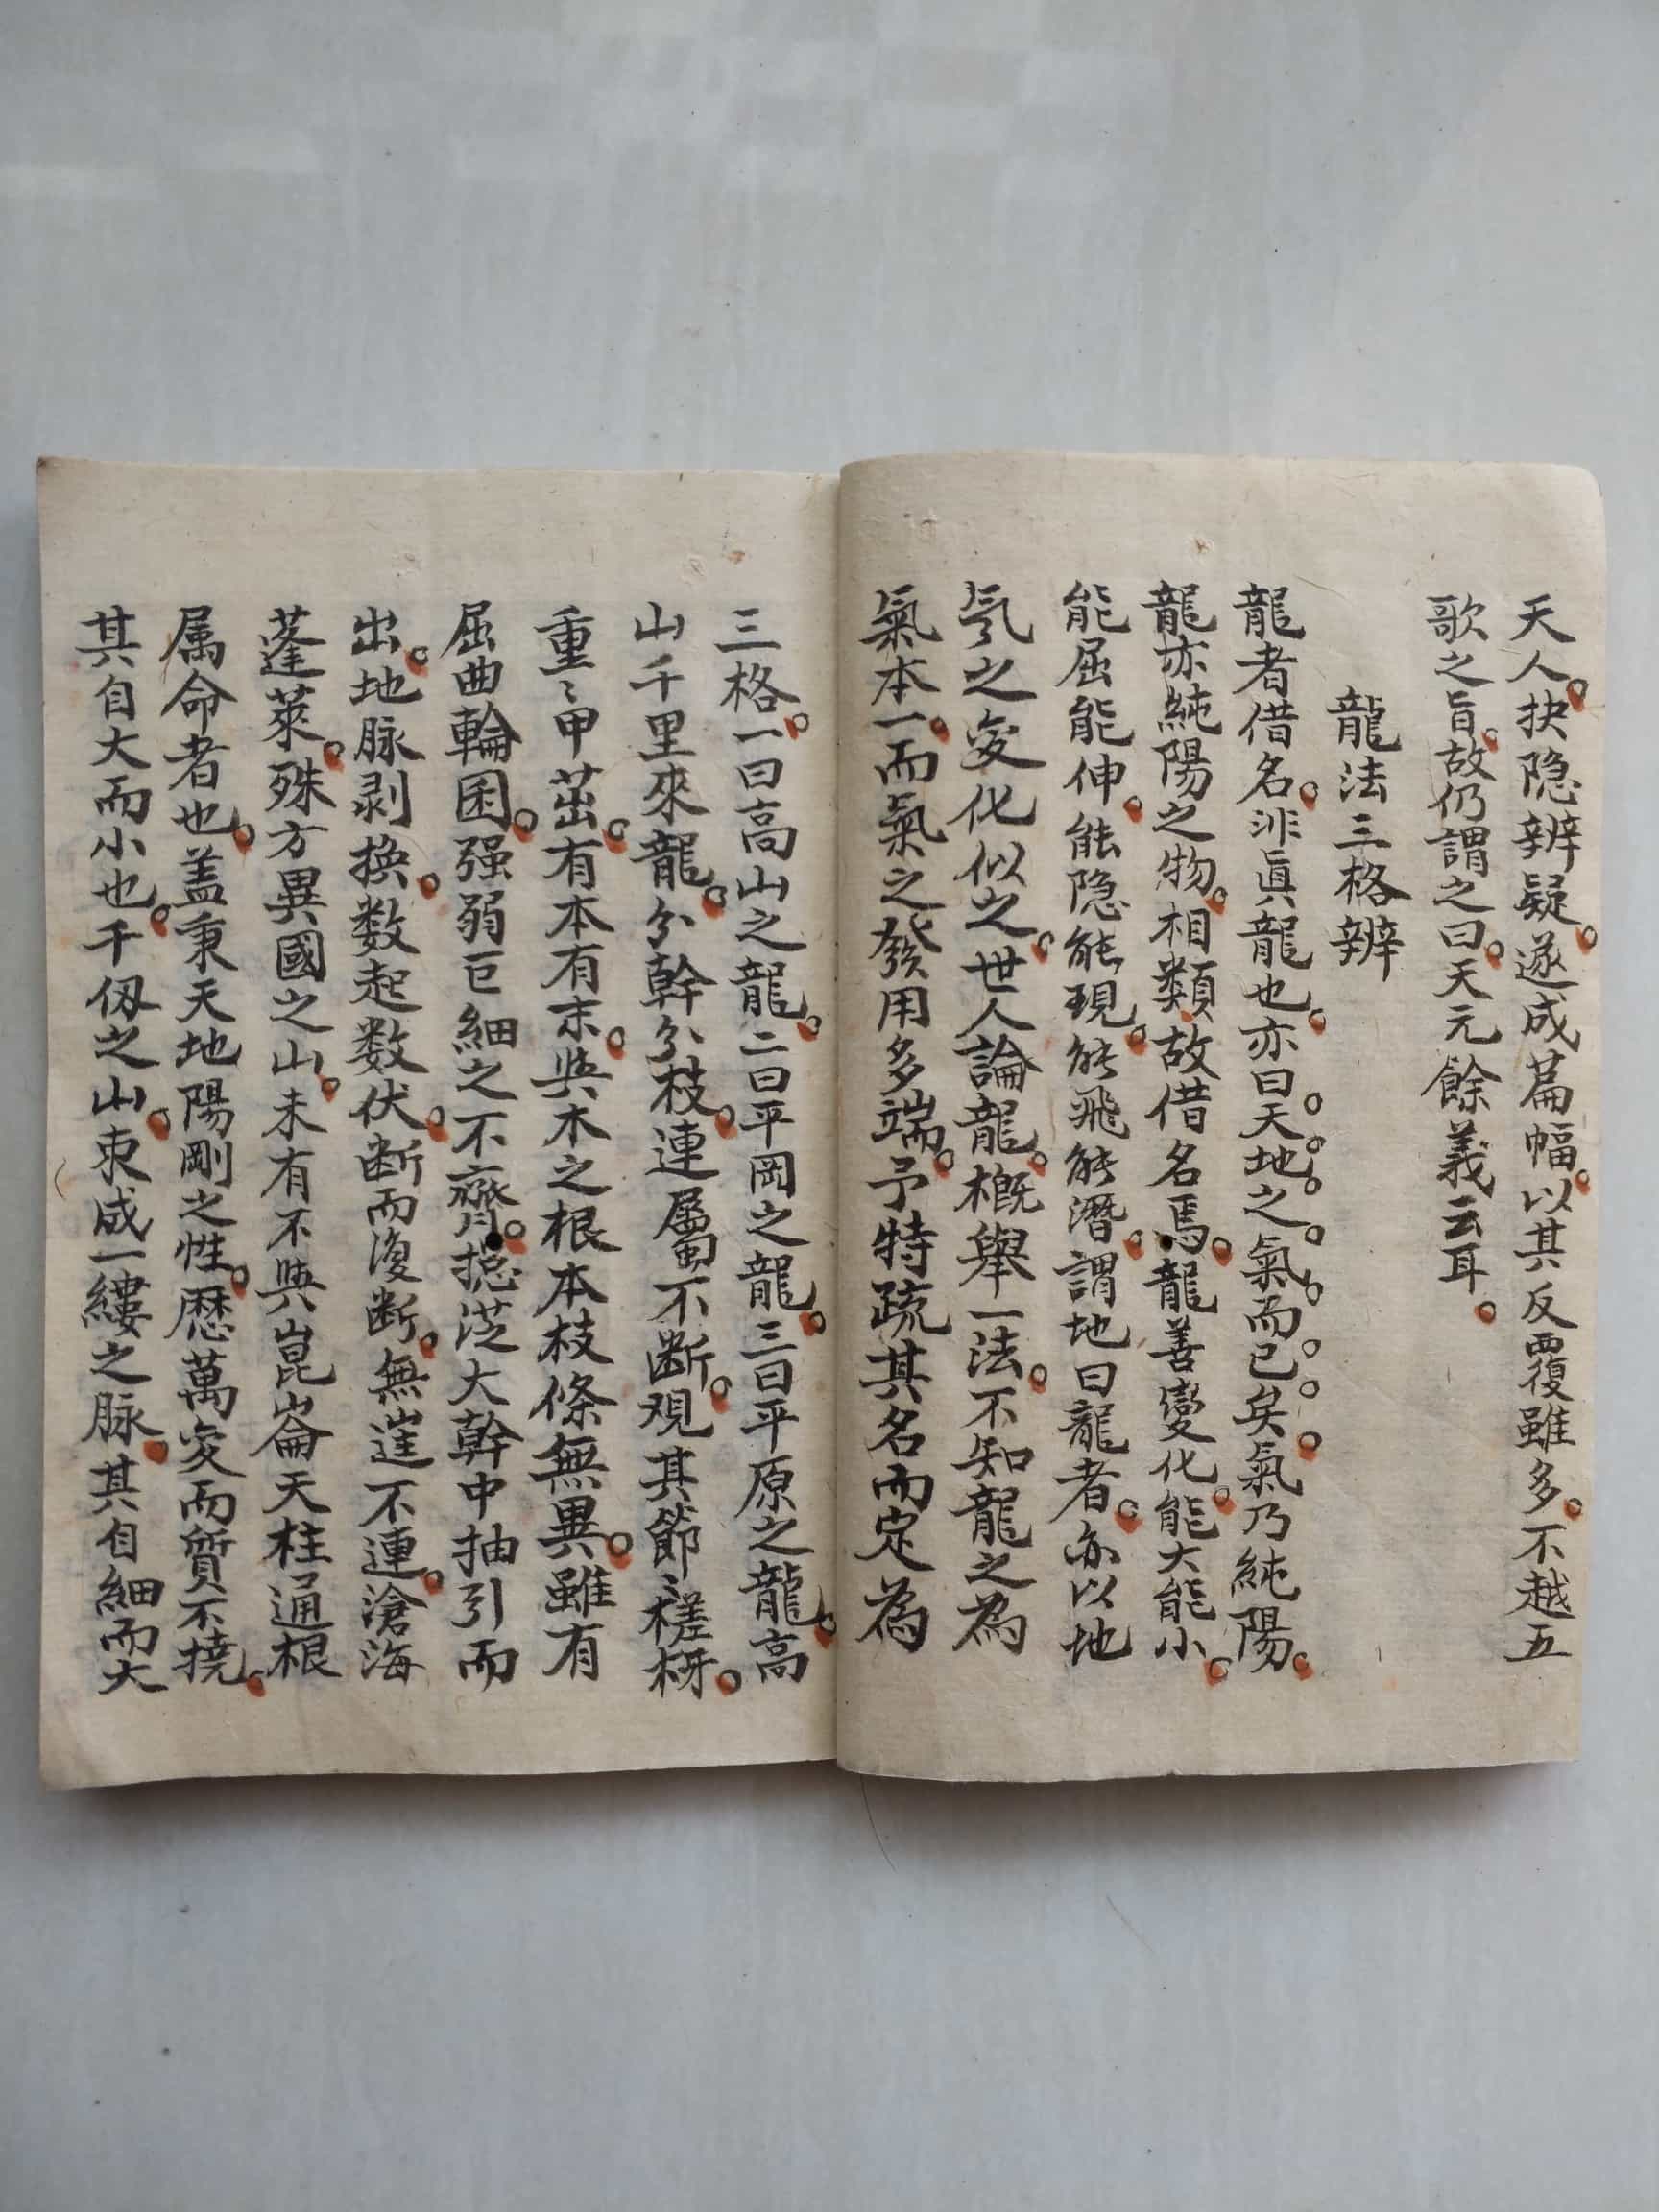 天人抉隐辨疑遂成篇幅以其反覆雖多不越五
歌之旨故仍謂之曰天元餘義云耳
龍法三格辨
龍者借名非眞龍也亦曰天地之氣而已矣氣乃純陽
龍亦純陽之物相類故借名焉龍善變化能大能小
能屈能伸能隐能現能飛能潛謂地曰龍者亦以地
氕之变化似之世人論龍概舉一法不知龍之為
氣本一而氣之發用多端予特疏其名而定為
三格一曰高山之龍二曰平岡之龍三曰平原之龍高
山千里來龍分幹分枝連屬不断观其節〻槎枒
重〻甲茁有本有末與木之根本枝條無異雖有
屈曲輪囷强弱巨細之不齊揔從大幹中抽引而
出地脉剥換数起数伏断而復断無遮不連滄海
蓬萊殊方異國之山未有不與崑崙天柱通根
属命者也盖秉天地陽剛之性歷萬变而質不撓
其自大而小也千仭之山束成一縷之脉其自細而大